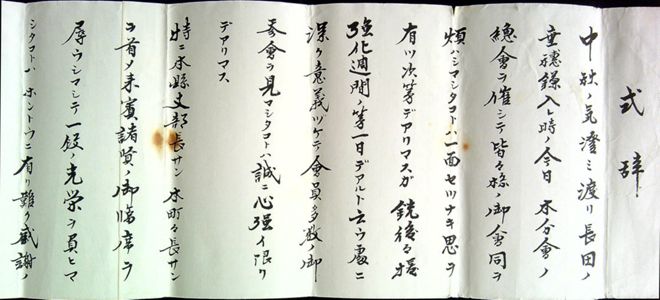 式辞
中秋ノ気澄ミ渡リ長田ノ
垂穂鎌入レ時ノ今日 本分會ノ
總會ヲ催シテ皆々様ノ御會同ヲ
煩ハシマシタコトハ一面セツナキ思ヲ
有ツ次第デアリマスガ銃後々援
強化週間ノ第一日デアルト云ウ處ニ
深ク意義ツケテ會員多数ノ御
参會ヲ見マシタコトハ誠ニ心強イ限リ
デアリマス
特ニ本縣支部長サン 本町々長サン
ヲ首メ来賓諸賢ノ御臨席ヲ
辱ウシマシテ一段ノ光栄ヲ員ヒマ
シタコトハ ホントウニ有リ難ク感謝ノ